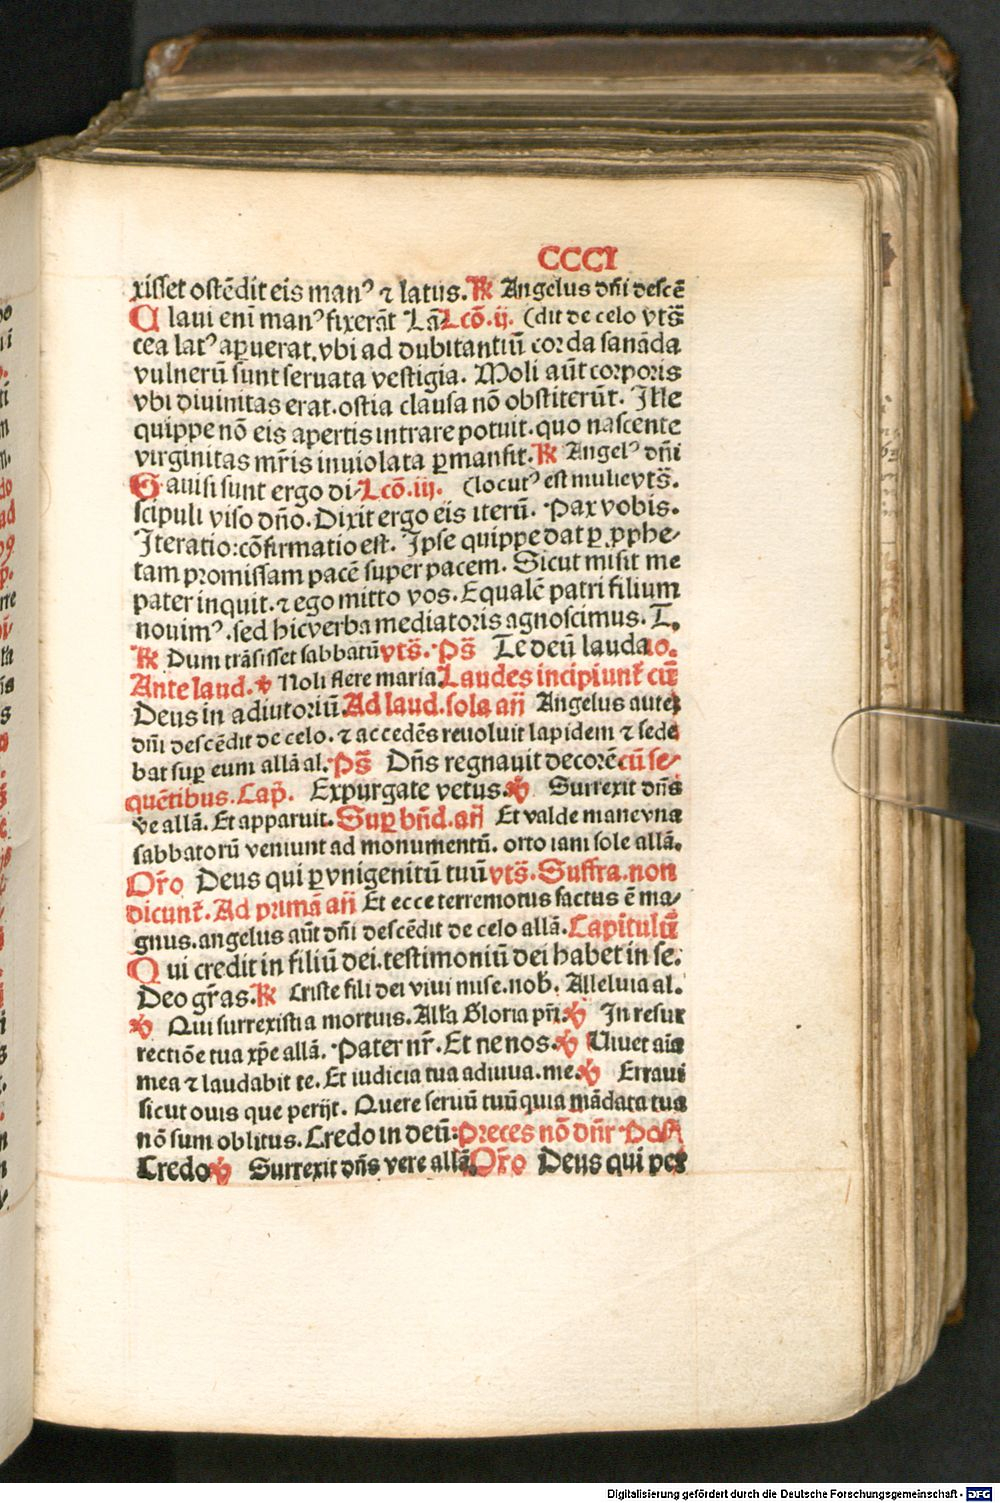 CCCI
xisset ostēdit eis manꝰ ⁊ latus. ℟ Angelus dn̄i descē
Claui eni manꝰ fixerāt Lā Lcō. ij. (dit de celo vts̄
cea latꝰ aꝑuerat. vbi ad dubitantiū corda sanāda
vulnerū sunt seruata vestigia. Noli aūt corporis
vbi diuinitas erat. ostia clausa nō obstiterūt. Ille
quippe nō eis apertis intrare potuit. quo nascente
virginitas mr̄is inuiolata ꝑmansit. ℟ Angelꝰ dn̄i
Gauisi sunt ergo di⸗ Lcō. iij. (locutꝰ est mulie vts̄.
scipuli viso dn̄o. Dixit ergo eis iterū. Pax vobis.
Iteratio: cōfirmatio est. Ipse quippe dat ꝑ ꝓphe⸗
tam promissam pacē super pacem. Sicut misit me
pater inquit. ⁊ ego mitto vos. Equalē patri filium
nouimꝰ. sed hic verba mediatoris agnoscimus. T.
℟ Dum trāsisset sabbatū vts̄. Ps̄ Te deū lauda
Ante laud. ℣ Noli flere maria. Laudes incipiunt̄ cū
Deus in adiutoriū. Ad laud. sola an̄ Angelus autē
dn̄i descēdit de celo. ⁊ accedēs reuoluit lapidem ⁊ sede
bat suꝑ eum allā al. Ps̄ Dn̄s regnauit decorē cū se⸗
quētibus. Cap̄. Expurgate vetus. ℣ Surrexit dn̄s
ve allā. Et apparuit. Suꝑ bn̄d. an̄ Et valde mane vna
sabbatorū veniunt ad monumentū. orto iam sole allā.
Or̄o Deus qui ꝑ vnigenitū tuū vts̄. Suffra. non
dicunt̄. Ad primā an̄ Et ecce terremotus factus ē ma⸗
gnus. angelus aūt dn̄i descēdit de celo allā. Capitulū
Qui credit in filiū dei. testimoniū dei habet in se.
Deo gr̄as. ℟ Criste fili dei viui mise. nob̄. Alleluia al.
℣ Qui surrexisti a mortuis. Alla Gloria pr̄i. ℣ In resur
rectiōe tua xp̄e allā. Pater nr̄. Et ne nos. ℣ Uiuet aīa
mea ⁊ laudabit te. Et iudicia tua adiuua. me. ℣ Erraui
sicut ouis que perijt. Quere seruū tuū quia mādata tua
nō sum oblitus. Credo in deū: Preces nō dn̄r Post
Credo ℣ Surrexit dn̄s vere allā. Or̄o Deus qui per
Digitalisierung gefördert durch die Deutsche Forschungsgemeinschaft - DFG